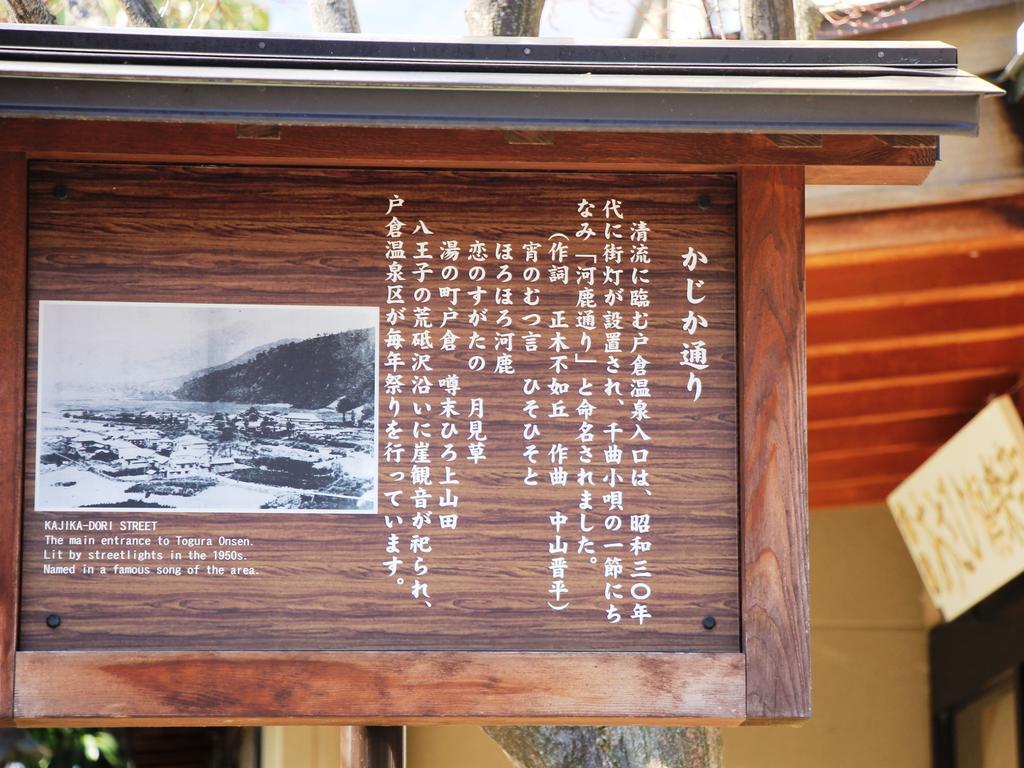 かじか通り
清流に臨む戸倉温泉入口は、昭和三〇年
代に街灯が設置され、千曲小唄の一節にち
なみ「河鹿通り」と命名されました。
(作詞 正木不如丘 作曲 中山晋平)
宵のむつ言 ひそひそと
ほろほろ河鹿
恋のすがたの 月見草
湯の町戸倉 噂末ひろ上山田
八王子の荒砥沢沿いに崖観音が祀られ、
戸倉温泉区が毎年祭りを行っています。
KAJIKA-DORI STREET
The main entrance to Togura Onsen.
Lit by streetlights in the 1950s.
Named in a famous song of the area.